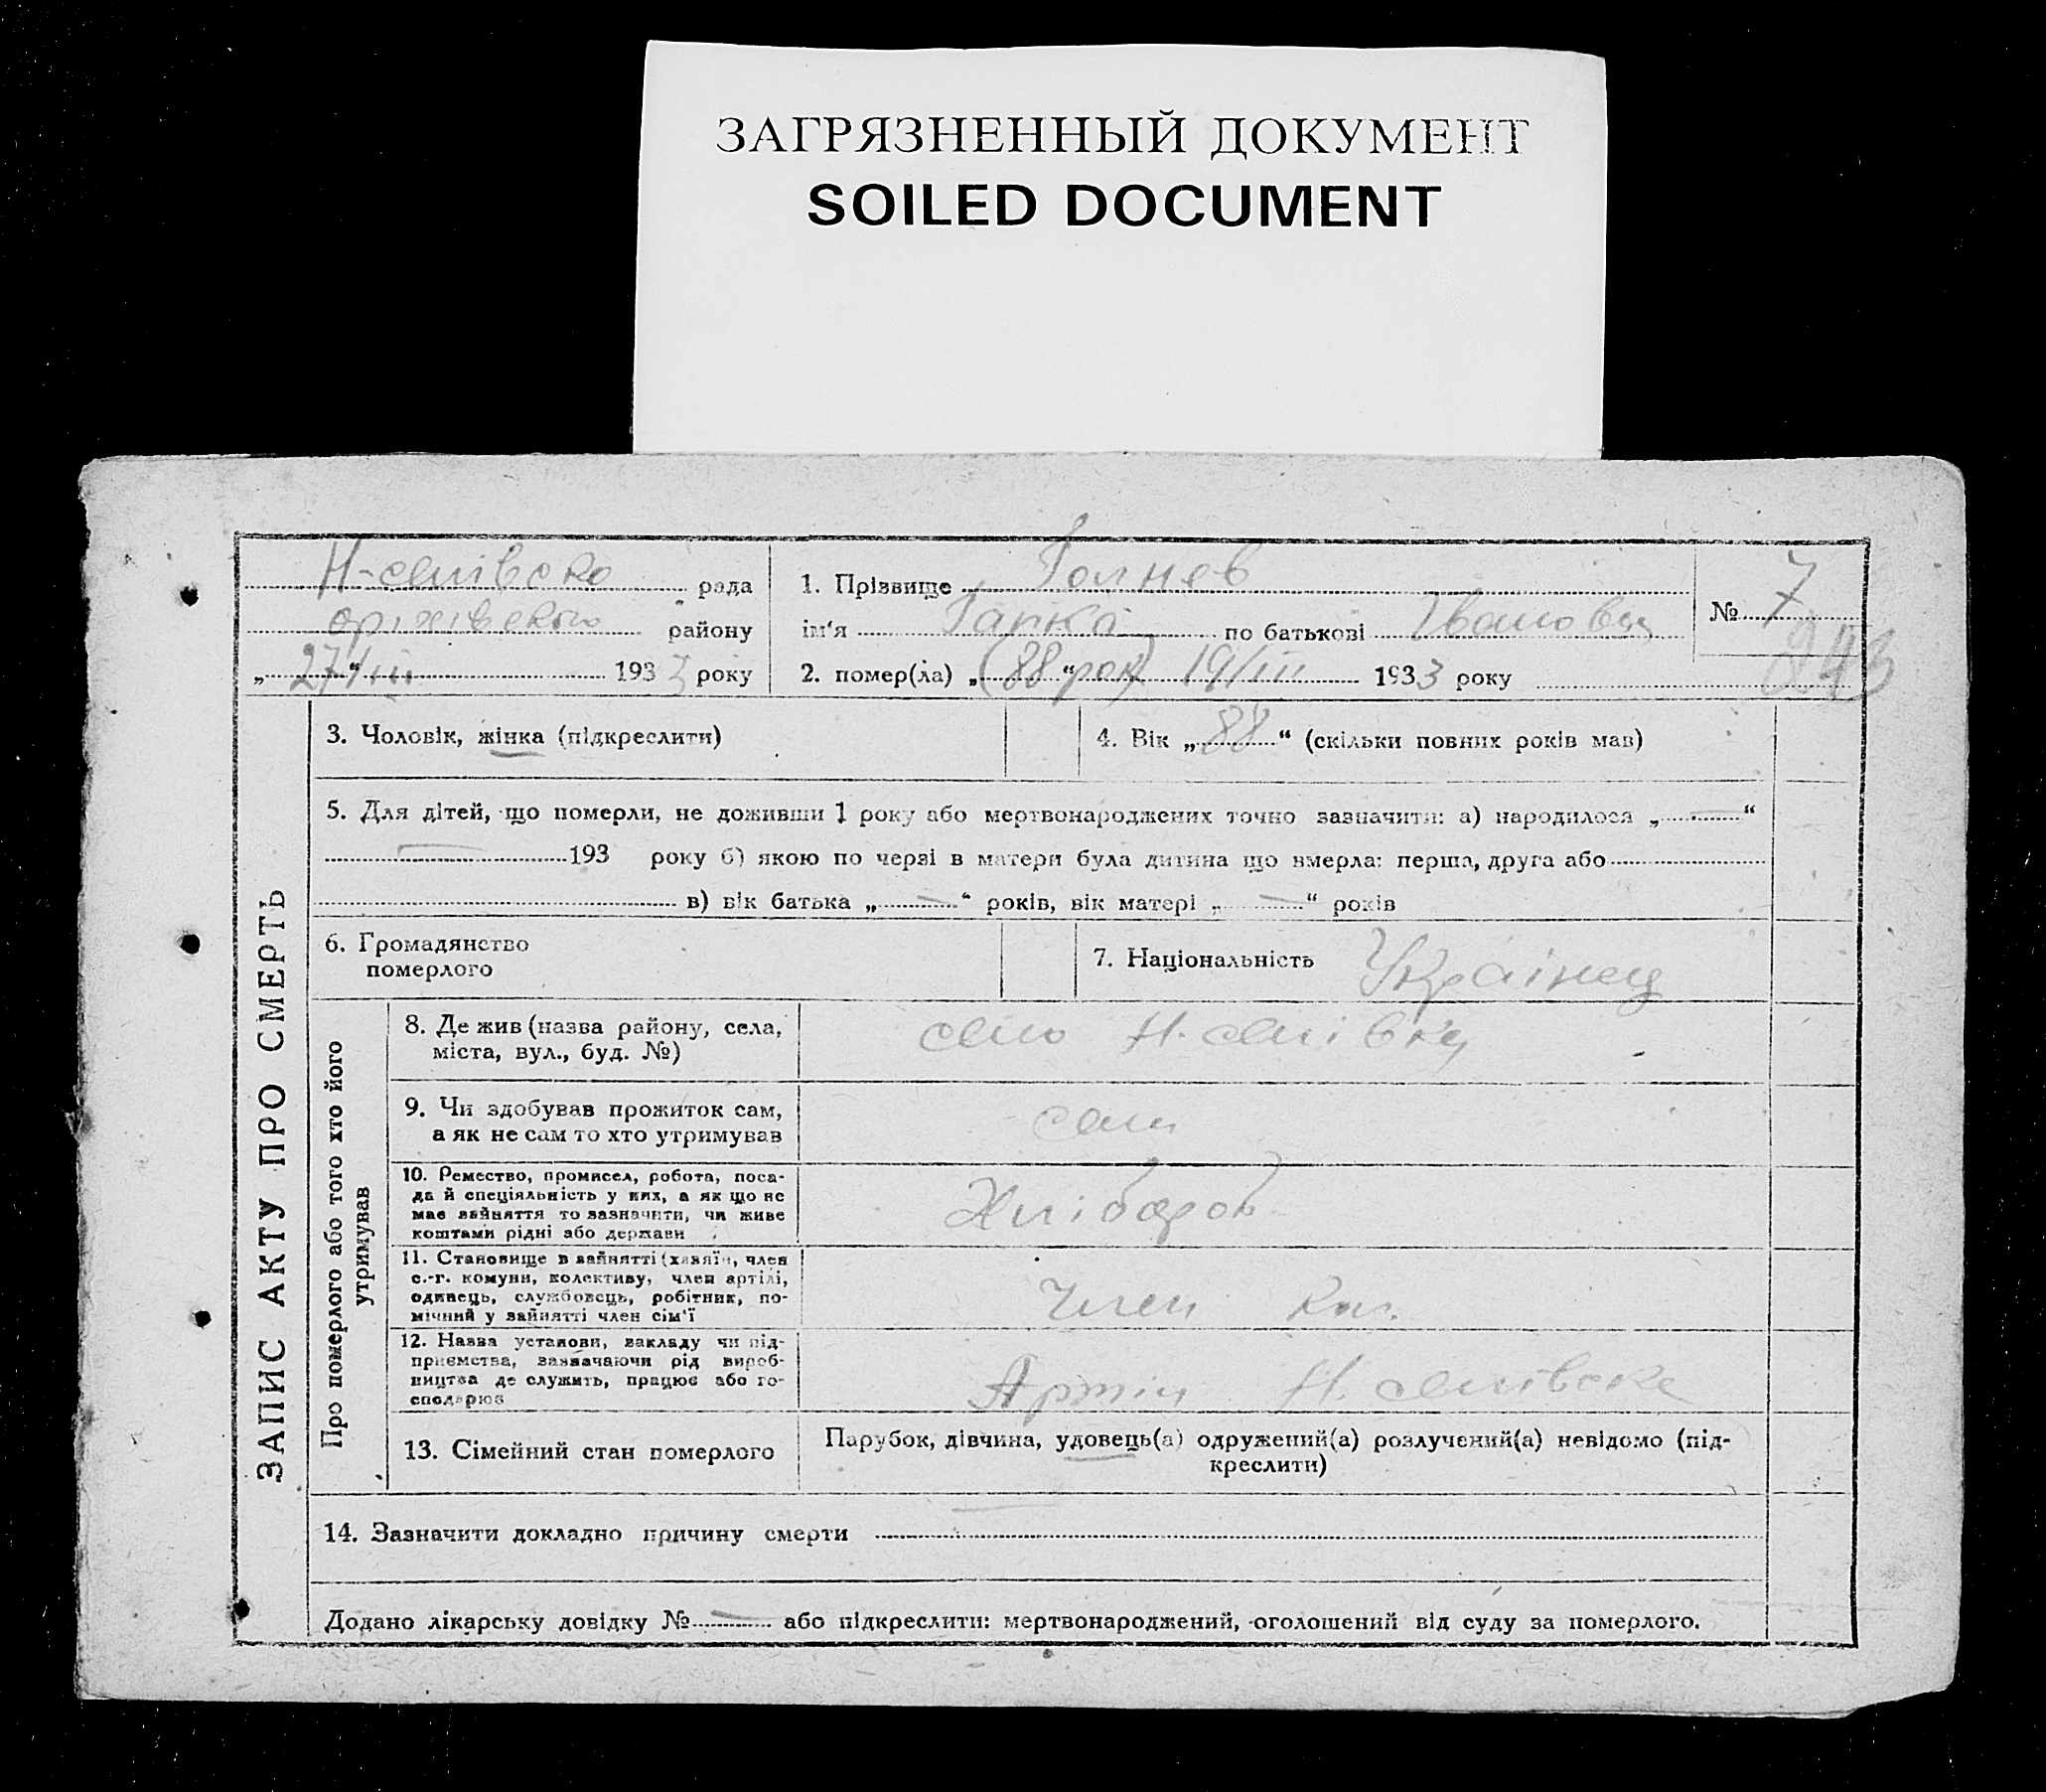 ЗАГРЯЗНЕННЫЙ ДОКУМЕНТ
SOILED DOCUMENT
рада
району
„27“/III 1933 року
1. Прізвище
ім'я Гапка по батькові Івановна
2. помер(ла) „(88 рок)“ 19/III 1933 року
№ 7
243
ЗАПИС АКТУ ПРО СМЕРТЬ
3. Чоловік, жінка (підкреслити)
4. Вік „88“ (скільки повних років мав)
5. Для дітей, що померли, не доживши 1 року або мертвонароджених точно зазначити: а) народилося „—“
— 193 року б) якою по черзі в матери була дитина що вмерла: перша, друга або
в) вік батька „—“ років, вік матері „—“ років
6. Громадянство
померлого
7. Національність Українец
Про померлого або того хто його
утримував
8. Де жив (назва району, села,
міста, вул., буд. №)
село
9. Чи здобував прожиток сам,
а як не сам то хто утримував
сам
10. Ремество, промисел, робота, поса-
да й спеціяльність у них, а як що не
має зайняття то зазначити, чи живе
коштами рідні або держави
Хлібороб
11. Становище в зайнятті (хазяїн, член
с.-г. комуни, колективу, член артілі,
одинець, службовець, робітник, по-
мічний у зайнятті член сім'ї
Член кол.
12. Назва установи, закладу чи під-
приємства, зазначаючи рід вироб-
ництва де служить, працює або го-
сподарює
Артіл
13. Сімейний стан померлого
Парубок, дівчина, удовець(а) одружений(а) розлучений(а) невідомо (під-
креслити)
14. Зазначити докладно причину смерти
Додано лікарську довідку № — або підкреслити: мертвонароджений, оголошений від суду за померлого.